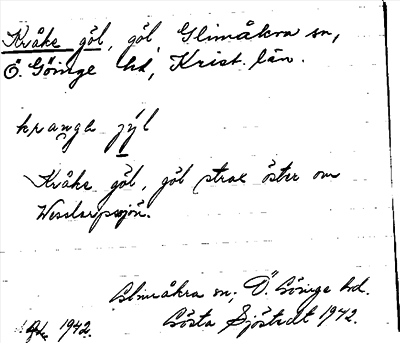 Kråke göl, göl, Glimåkra sn,
Ö. Göinge hd, Krist. län.
Kråke göl, göl strax öster om
Wesslarpssjön.
Glimåkra sn; Ö. Göinge hd.
1942. Gösta Sjöstedt 1942.